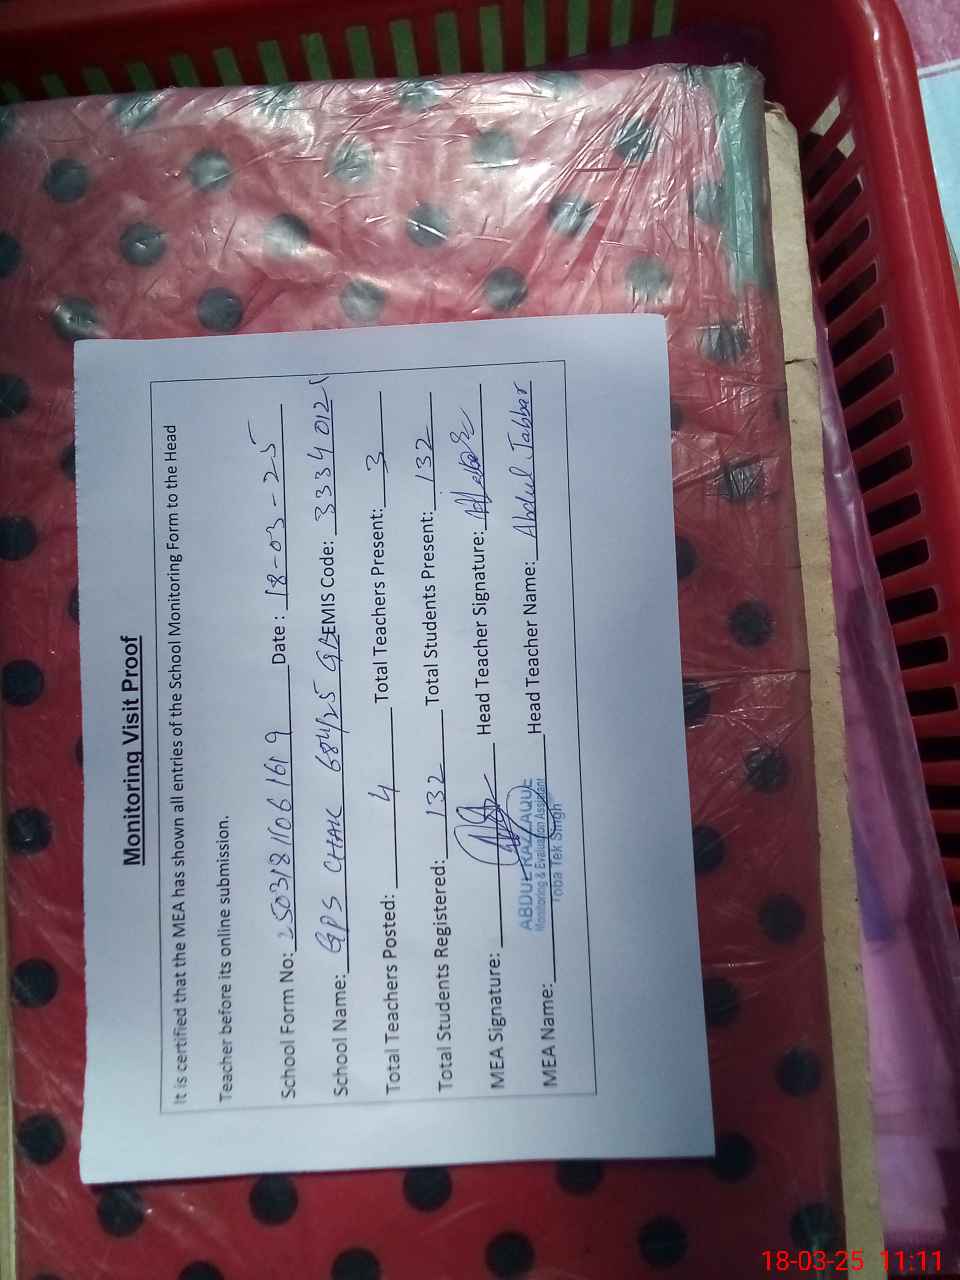 Monitoring Visit Proof
It is certified that the MEA has shown all entries of the School Monitoring Form to the Head
Teacher before its online submission.
School Form No: 25031811061619 Date : 18-03-25
School Name: GPS CHAK 684/25 GB EMIS Code: 3334012
Total Teachers Posted: 4 Total Teachers Present: 3
Total Students Registered: 132 Total Students Present: 132
MEA Signature: Head Teacher Signature:
MEA Name: ABDUL RAZZAQUE Head Teacher Name: Abdul Jabbar
Monitoring & Evaluation Assistant
Toba Tek Singh
18-03-25 11:11